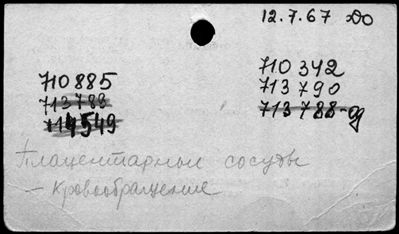 12.7.67
710885
713789
714549
710342
713790
713788-од
Плацентарные сосуды
– Кровообращение